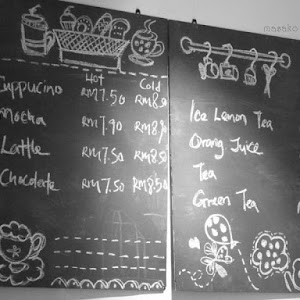 Hot Cold
Cappucino RM7.50 RM8.50
Mocha RM7.90 RM8.90
Latte RM7.50 RM8.50
Chocolate RM7.50 RM8.50
Ice Lemon Tea
Orang Juice
Tea
Green Tea